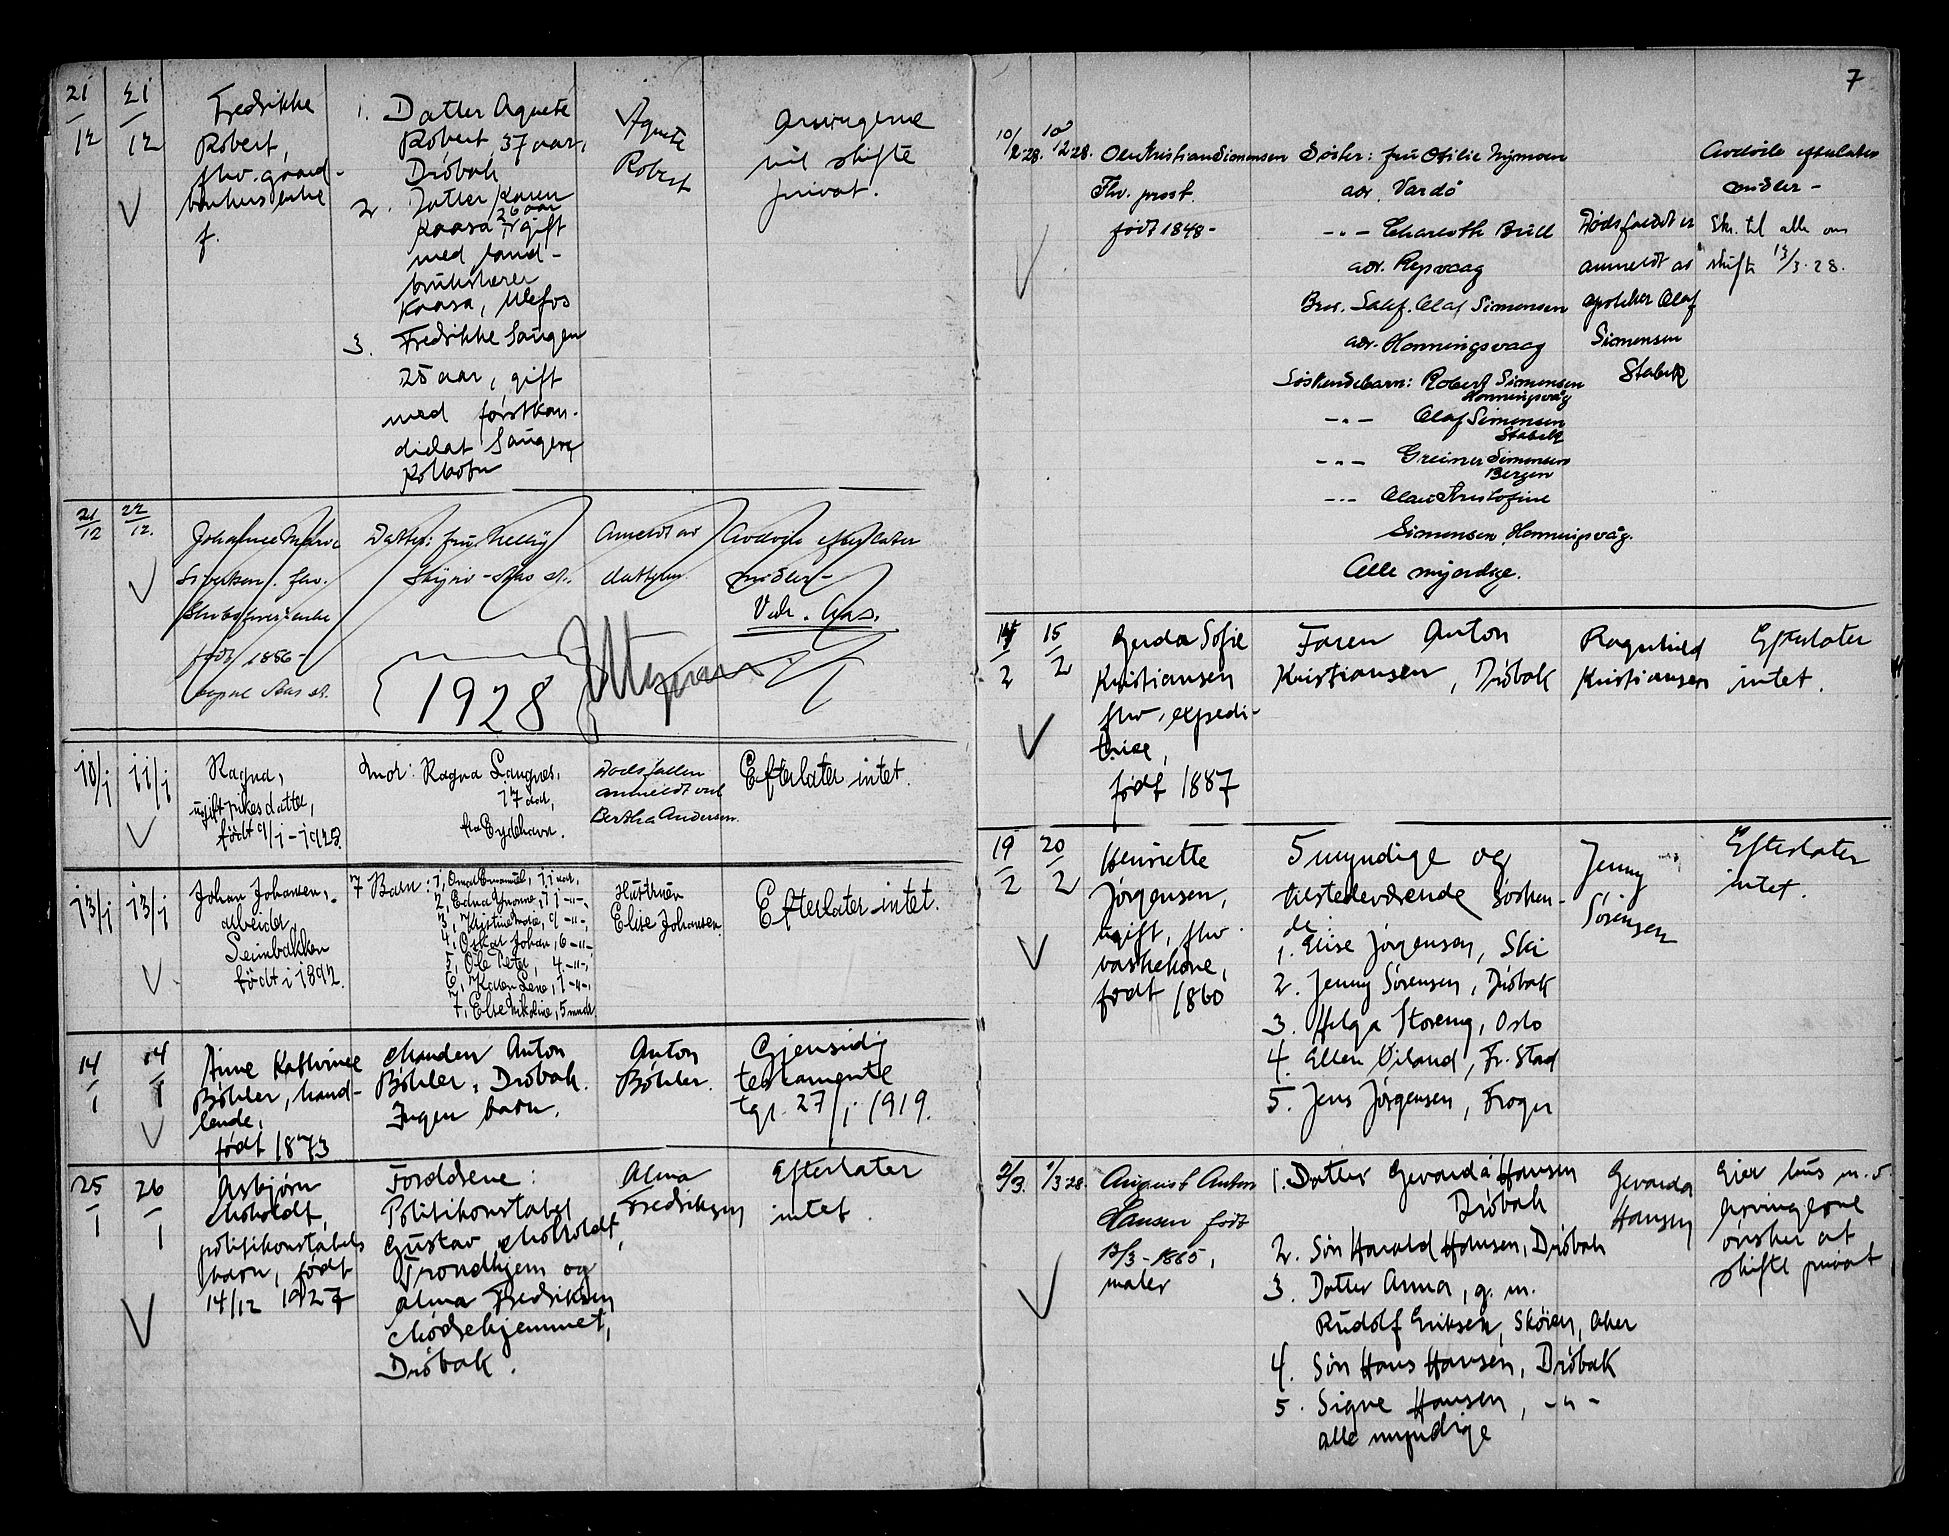 21/12
21/12
Fredrikke
Robert,
fhv. gaard-
brukerenke
f.
1. Datter Agnete
Robert, 37 aar,
Dröbak
2. Datter Karen
26 aar
Kaasa, gift
med land-
bruks
Kaasa, Ulefos
3. Fredrikke Saugen
25 aar, gift
med forstkan-
didat Saugen,
Kolbotn
Agnete
Robert
Arvingerne
vil skifte
privat.
21/12
22/12.
Johanne Marie
Sivertsen, fhv.
født 1886 -
Aas st.
Datter: fru Nelly
- Aas st.
Anmeldt av
datteren
Avdøde efterlater
midler -
Vedr. Aas.
1928
10/1
11/1
Ragna,
ugift pikes datter,
født 9/1 - 1928.
Mor: Ragna Langnes,
17 aar,
fra Eydehavn.
Dødsfallet
anmeldt ved
Bertha Andersen.
Efterlater intet.
13/1
13/1
Johan Johansen,
arbeider,
født i 1892.
7 Barn: 1, Emanuel, 11 aar,
2, Edna Yvonne, 11 -"-,
3, Kristine Marie, 9 -"-,
4, Oskar Johan, 6 -"-,
5, Ole Peter, 4 -"-,
6, Karen Lene, 1 -"-,
7, Else Nikoline, 5 mndr
Hustruen
Elise Johansen.
Efterlater intet.
14/1
14/1
Anne Kathrine
Böhler, hand-
lende,
født 1873
Manden Anton
Böhler, Dröbak.
Ingen barn.
Anton
Böhler.
Gjensidig
testamente
tgl. 27/1 1919.
25/1
26/1
Asbjørn
Moholdt,
politikonstabels
barn, født
14/12 1927
Foreldrene:
Politikonstabel
Gustav Moholdt,
Trondhjem og
Alma Fredriksen
Mødrehjemmet,
Dröbak.
Alma
Fredriksen
Efterlater
intet.
7
10/2 28.
10/2 28.
Ole Kristian Simonsen
Fhv. prost.
født 1848 -
Søster: fru Otilie
adr. Vardö
-"- Charloth Brill
adr. Repvaag
Bror. Olaf Simonsen
adr. Honningsvaag
Søskendebarn: Robert Simonsen
Honningsvåg
-"- Olaf Simonsen
Stabekk
-"- Greiner Simonsen
Bergen
-"- Kristofine
Simonsen Honningsvåg.
Alle myndige.
Dødsfaldet er
anmeldt av
apoteker Olaf
Simonsen
Stabekk
Avdøde efterlater
midler -
Skr. til alle om
skifte 13/3.28.
14/2
15/2
Gerda Sofie
Kristiansen
fhv. expedi-
trice,
født 1887
Faren Anton
Kristiansen, Dröbak
Ragnhild
Kristiansen
Efterlater
intet.
19/2
20/2
Henriette
Jørgensen,
ugift, fhv.
vaskekone,
født 1860
5 myndige og
tilstedeværende søsken-
de:
1. Elise Jørgensen, Ski
2. Jenny Sørensen, Dröbak
3. Helga Storeng, Oslo
4. Ellen Öiland, Fr. Stad
5. Jens Jørgensen, Frogn
Jenny
Sörensen
Efterlater
intet.
2/3.
2/3 28.
August Anton
Hansen født
1865,
maler
1. Datter Gevarda Hansen
Dröbak
2. Søn Harald Hansen, Dröbak
3. Datter Anna, g. m.
Rudolf Eriksen, Sköien, Aker
4. Søn Hans Hansen, Dröbak
5. Signe Hansen, -"-
alle myndige
Gevarda
Hansen
Eier hus m. v.
Arvingerne
ønsker at
skifte privat